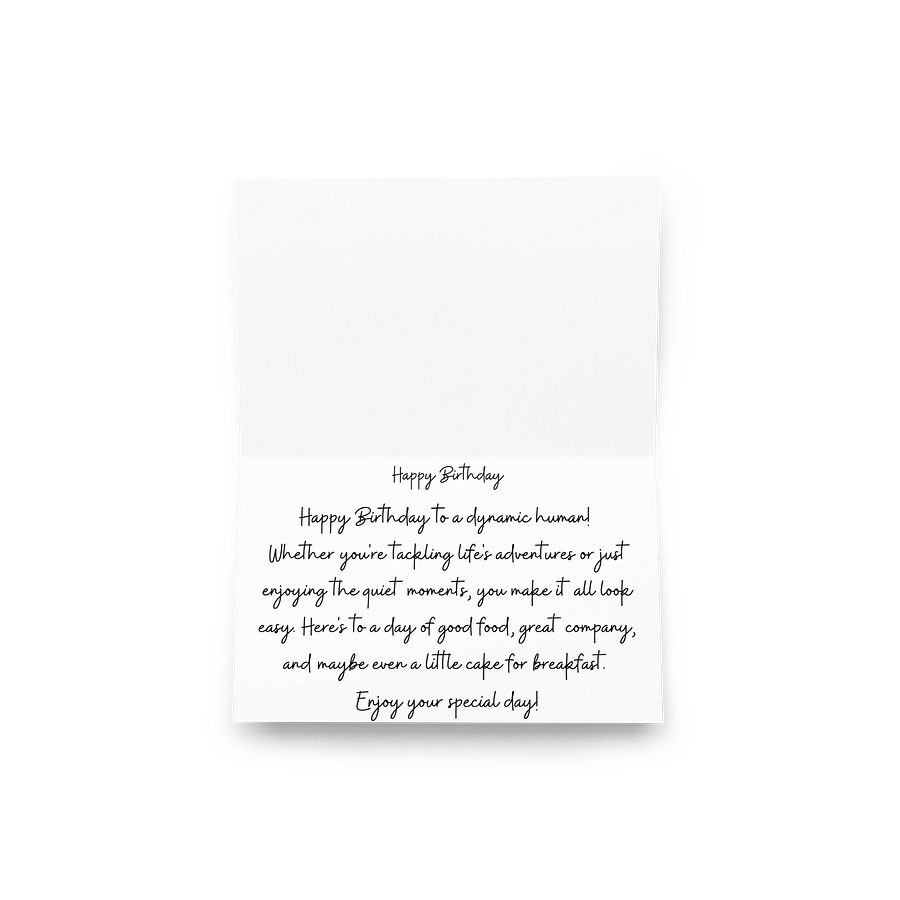 Happy Birthday
Happy Birthday to a dynamic human!
Whether you're tackling life's adventures or just
enjoying the quiet moments, you make it all look
easy. Here's to a day of good food, great company,
and maybe even a little cake for breakfast.
Enjoy your special day!